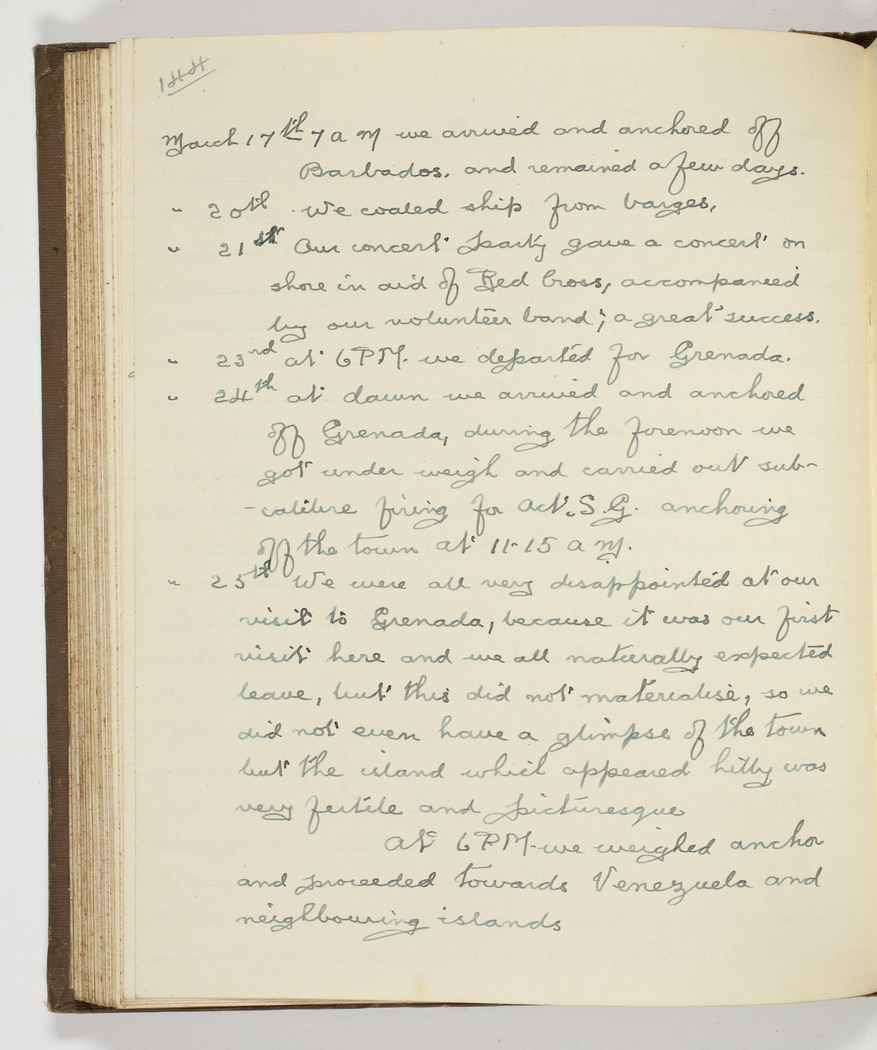 144
March 17th 7 a m we arrived and anchored off
Barbados. and remained a few days.
" 20th . We coaled ship from barges,
" 21st Our concert party gave a concert on
shore in aid of Red Cross, accompanied
by our volunteer band; a great success.
" 23rd at 6 P.M. we departed for Grenada.
" 24th at dawn we arrived and anchored
off Grenada, during the forenoon we
got under weigh and carried out sub-
-calibre firing for Act. S.G. anchoring
off the town at 11-15 a m.
" 25th We were all very disappointed at our
visit to Grenada, because it was our first
visit here and we all naturally expected
leave, but this did not materialise, so we
did not even have a glimpse of the town
but the island which appeared hilly was
very fertile and picturesque
At 6 PM-we weighed anchor
and proceeded towards Venezuela and
neighbouring islands